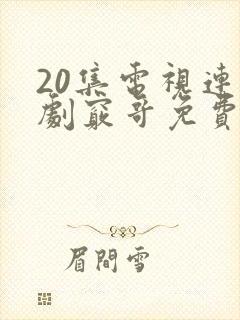 20集電視連
劇窮哥免費
眉間雪